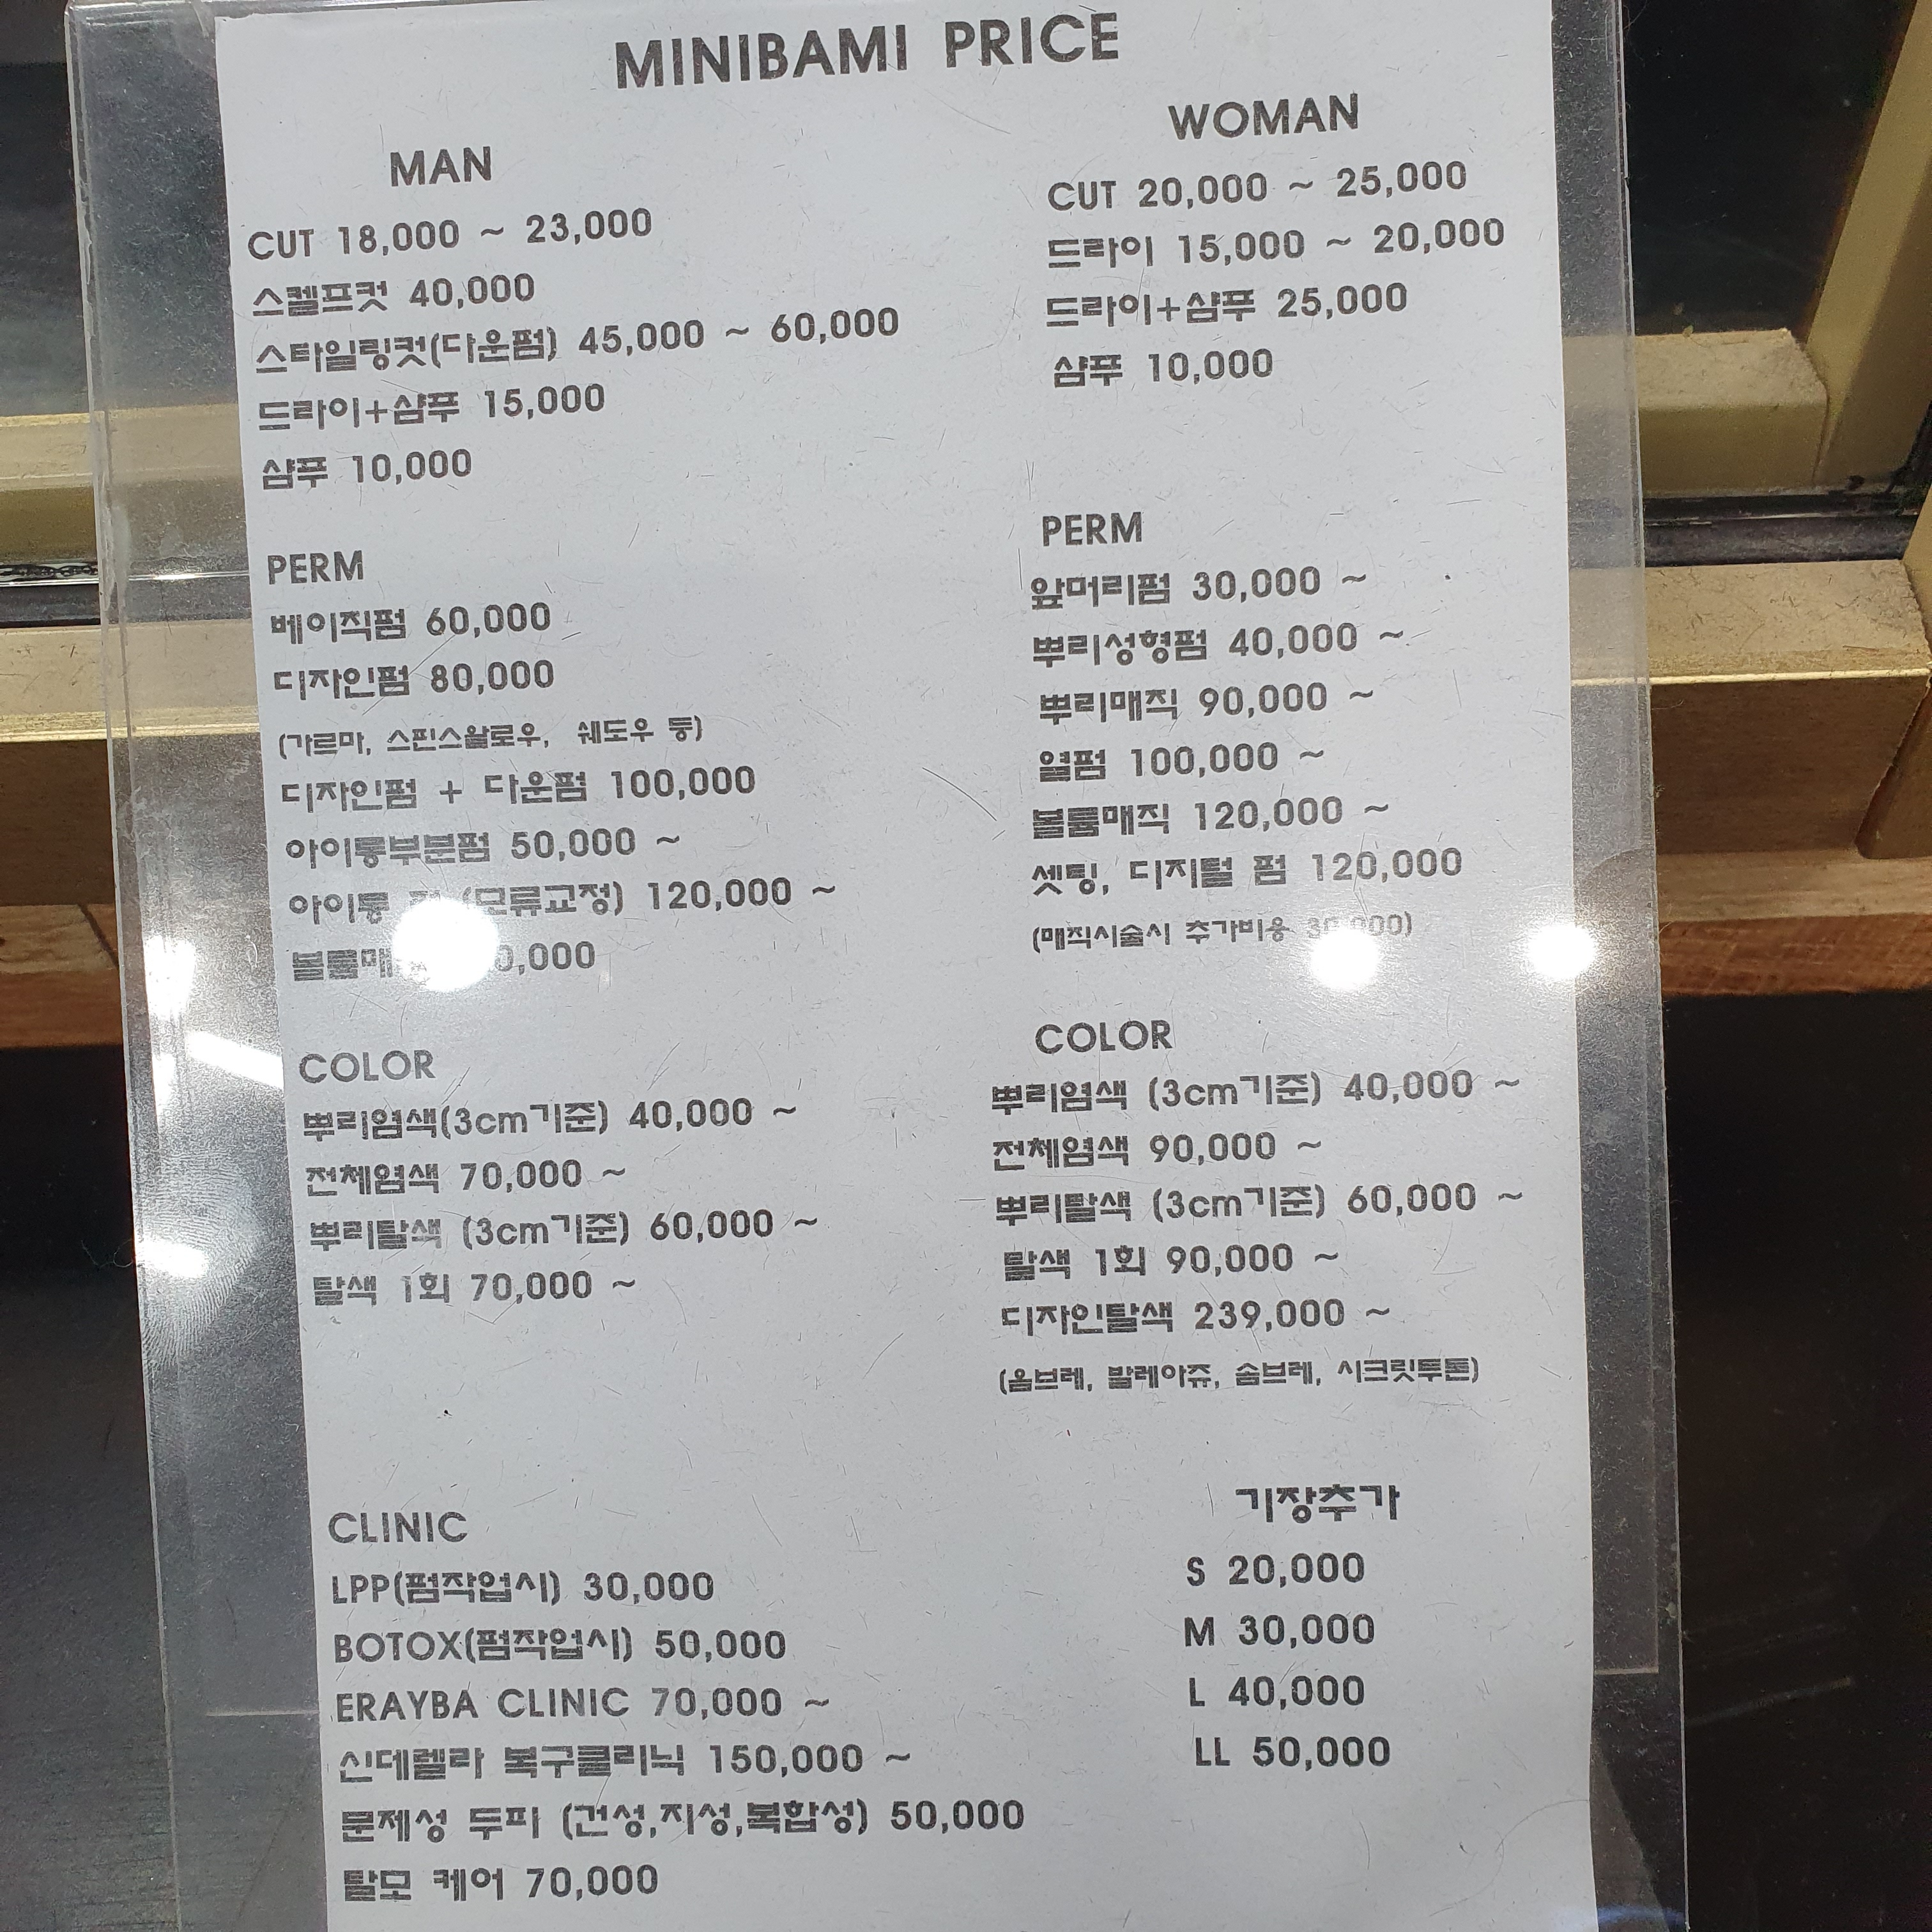 MINIBAMI PRICE
MAN
CUT 18,000 ~ 23,000
스켈프컷 40,000
스타일링컷(다운펌) 45,000 ~ 60,000
드라이+샴푸 15,000
샴푸 10,000
PERM
베이직펌 60,000
디자인펌 80,000
(가르마, 스핀스왈로우, 쉐도우 등)
디자인펌 + 다운펌 100,000
아이롱부분펌 50,000 ~
아이롱 (모류교정) 120,000 ~
COLOR
뿌리염색(3cm기준) 40,000 ~
전체염색 70,000 ~
뿌리탈색 (3cm기준) 60,000 ~
탈색 1회 70,000 ~
CLINIC
LPP(펌작업시) 30,000
BOTOX(펌작업시) 50,000
ERAYBA CLINIC 70,000 ~
신데렐라 복구클리닉 150,000 ~
문제성 두피 (건성,지성,복합성) 50,000
탈모 케어 70,000
WOMAN
CUT 20,000 ~ 25,000
드라이 15,000 ~ 20,000
드라이+샴푸 25,000
샴푸 10,000
PERM
앞머리펌 30,000 ~
뿌리성형펌 40,000 ~
뿌리매직 90,000 ~
열펌 100,000 ~
볼륨매직 120,000 ~
셋팅, 디지털 펌 120,000
(매직시술시 추가비용 30,000)
COLOR
뿌리염색 (3cm기준) 40,000 ~
전체염색 90,000 ~
뿌리탈색 (3cm기준) 60,000 ~
탈색 1회 90,000 ~
디자인탈색 239,000 ~
(옴브레, 발레아쥬, 솜브레, 시크릿투톤)
기장추가
S 20,000
M 30,000
L 40,000
LL 50,000